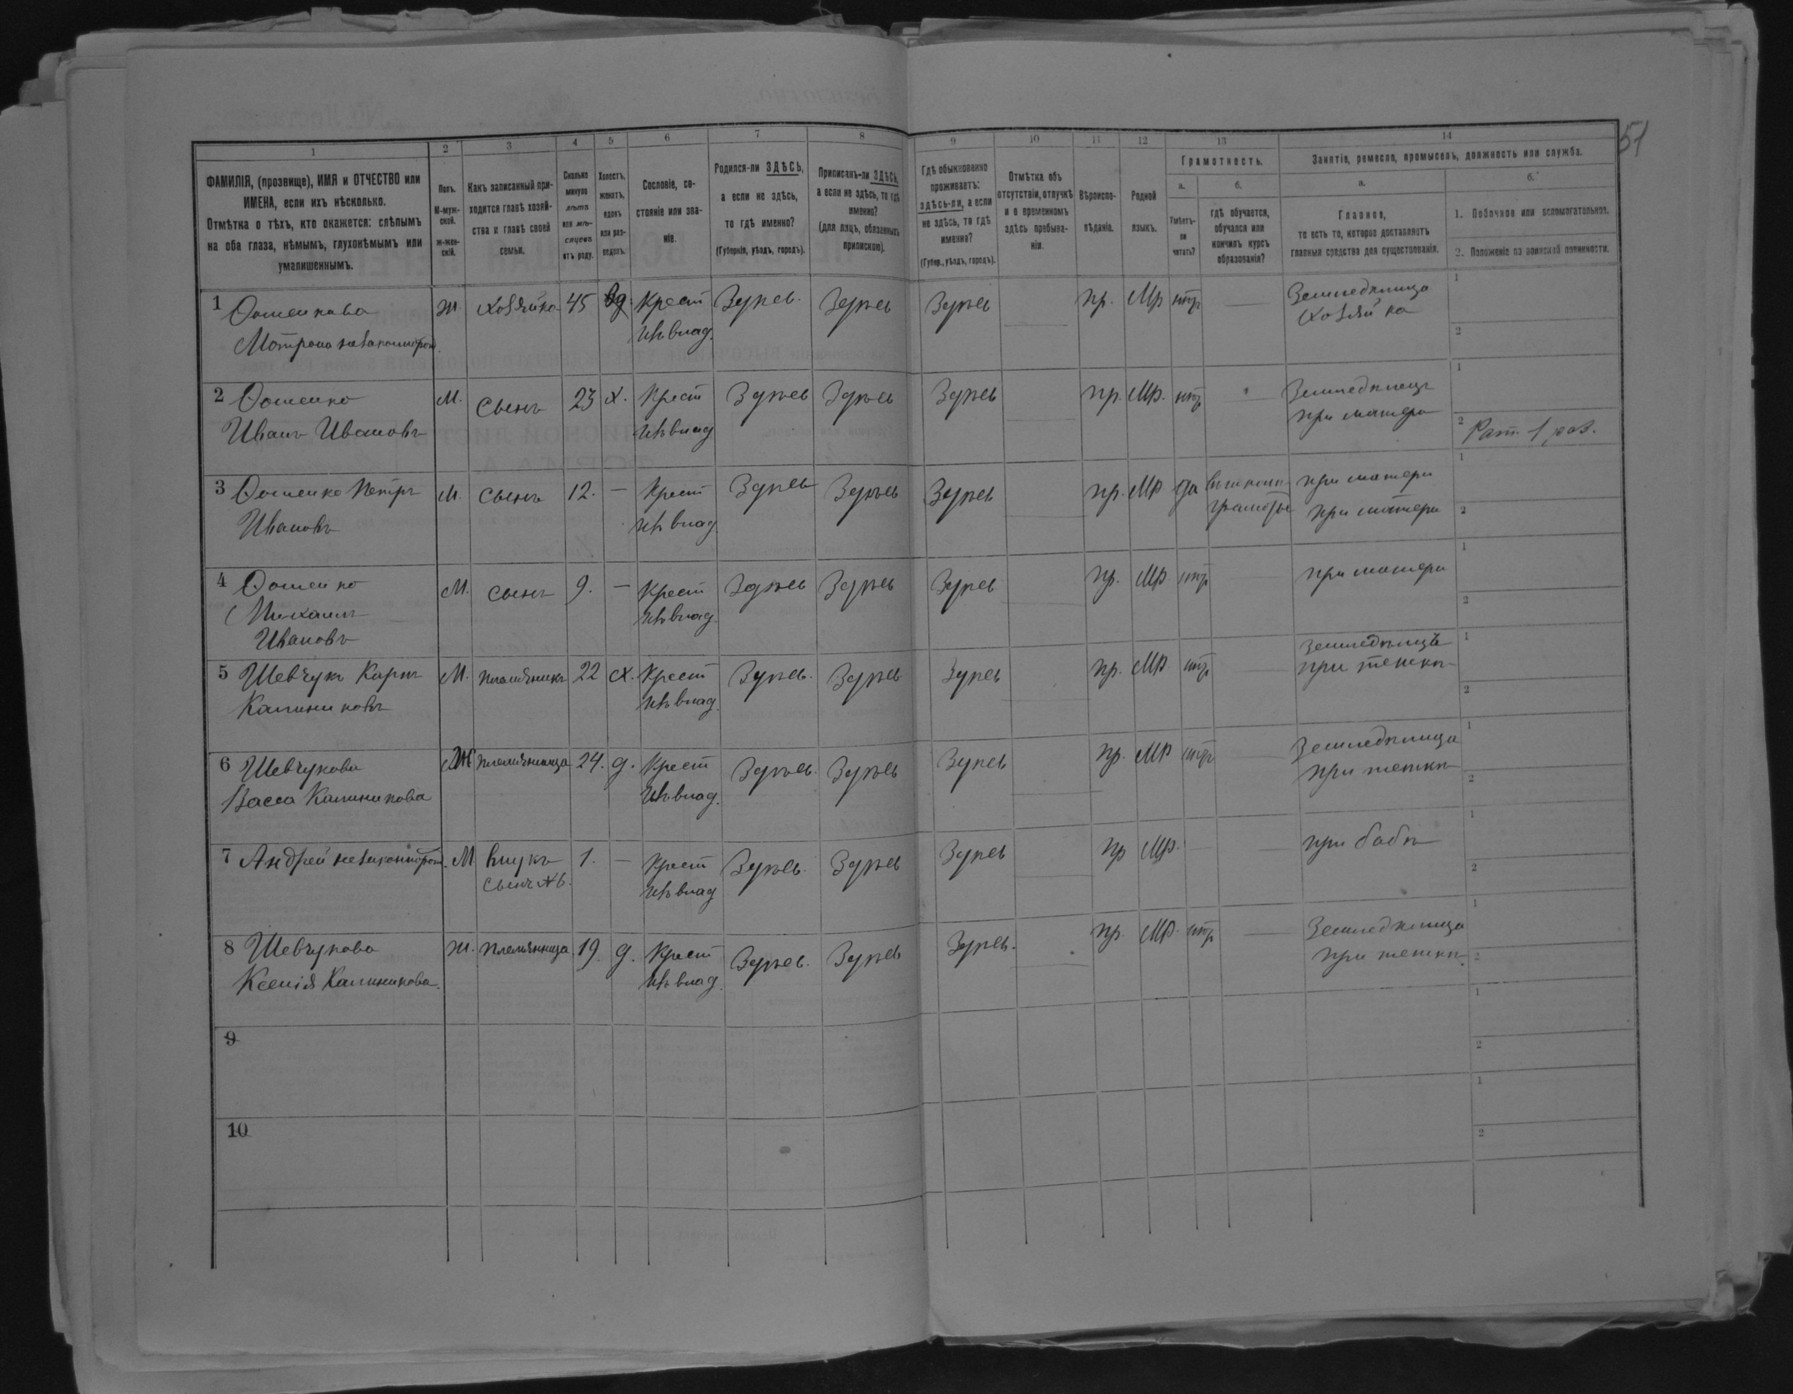 51
1 2 3 4 5 6 7 8 9 10 11 12 13 14
ФАМИЛІЯ, (прозвище), ИМЯ и ОТЧЕСТВО или
ИМЕНА, если ихъ нѣсколько.
Отмѣтка о тѣхъ, кто окажется: слѣпымъ
на оба глаза, нѣмымъ, глухонѣмымъ или
умалишеннымъ.
Полъ.
М-муж-
ской.
Ж-жен-
скій.
Какъ записанный при-
ходится главѣ хозяй-
ства и главѣ своей
семьи.
Сколько
минуло
лѣтъ
или мѣ-
сяцевъ
отъ роду.
Холостъ,
женатъ,
вдовъ
или раз-
веденъ.
Сословіе, со-
стояніе или зва-
ніе.
Родился-ли ЗДѢСЬ,
а если не здѣсь,
то гдѣ именно?
(Губернія, уѣздъ, городъ).
Приписанъ-ли ЗДѢСЬ,
а если не здѣсь, то гдѣ
именно?
(для лицъ, обязанныхъ
припиской).
Гдѣ обыкновенно
проживаетъ:
здѣсь-ли, а если
не здѣсь, то гдѣ
именно?
(Губер., уѣздъ, городъ).
Отмѣтка объ
отсутствіи, отлучкѣ
и о временномъ
здѣсь пребыва-
ніи.
Вѣроиспо-
вѣданіе.
Родной
языкъ.
Грамотность.
а.
Умѣетъ-
ли
читать?
б.
гдѣ обучается,
обучался или
кончилъ курсъ
образованія?
Занятіе, ремесло, промыселъ, должность или служба.
а.
Главное,
то есть то, которое доставляетъ
главныя средства для существованія.
б.
1. Побочное или вспомогательное.
2. Положеніе по воинской повинности.
1
Матрона незаконнорож.
Ж хозяйка 45 вд. Крест из влад. Здѣсь Здѣсь Здѣсь пр. Мр нѣтъ Земледѣлица
хозяйка
1
2
2
Иванъ Ивановъ
М. сынъ 23 х. Крест из влад Здѣсь Здѣсь Здѣсь пр. Мр. нѣтъ Земледѣлецъ
при матери
1
2 Рат. 1 раз.
3 Петръ
Ивановъ
М. сынъ 12. — Крест из влад. Здѣсь Здѣсь Здѣсь пр. Мр да грамоты при матери
при матери
1
2
4
Михаилъ
Ивановъ
М. сынъ 9. — Крест из влад. Здѣсь Здѣсь Здѣсь пр. Мр нѣтъ при матери
1
2
5 Шевчукъ Карпъ
Калиниковъ
М. племянникъ 22 х. Крест из влад. Здѣсь. Здѣсь Здѣсь пр. Мр нѣтъ земледѣлецъ
при теткѣ
1
2
6 Шевчукова
Васса Калиникова
Ж племянница 24. д. Крест из влад. Здѣсь. Здѣсь Здѣсь пр. Мр нѣтъ Земледѣлица
при теткѣ
1
2
7 Андрей незаконнорож.
М внукъ
1. — Крест из влад Здѣсь. Здѣсь Здѣсь пр Мр. при бабѣ
1
2
8 Шевчукова
Ксенія Калиникова.
Ж. племянница 19. д. Крест из влад. Здѣсь. Здѣсь Здѣсь. пр. Мр. нѣтъ Земледѣлица
при теткѣ.
1
2
9
1
2
10
1
2